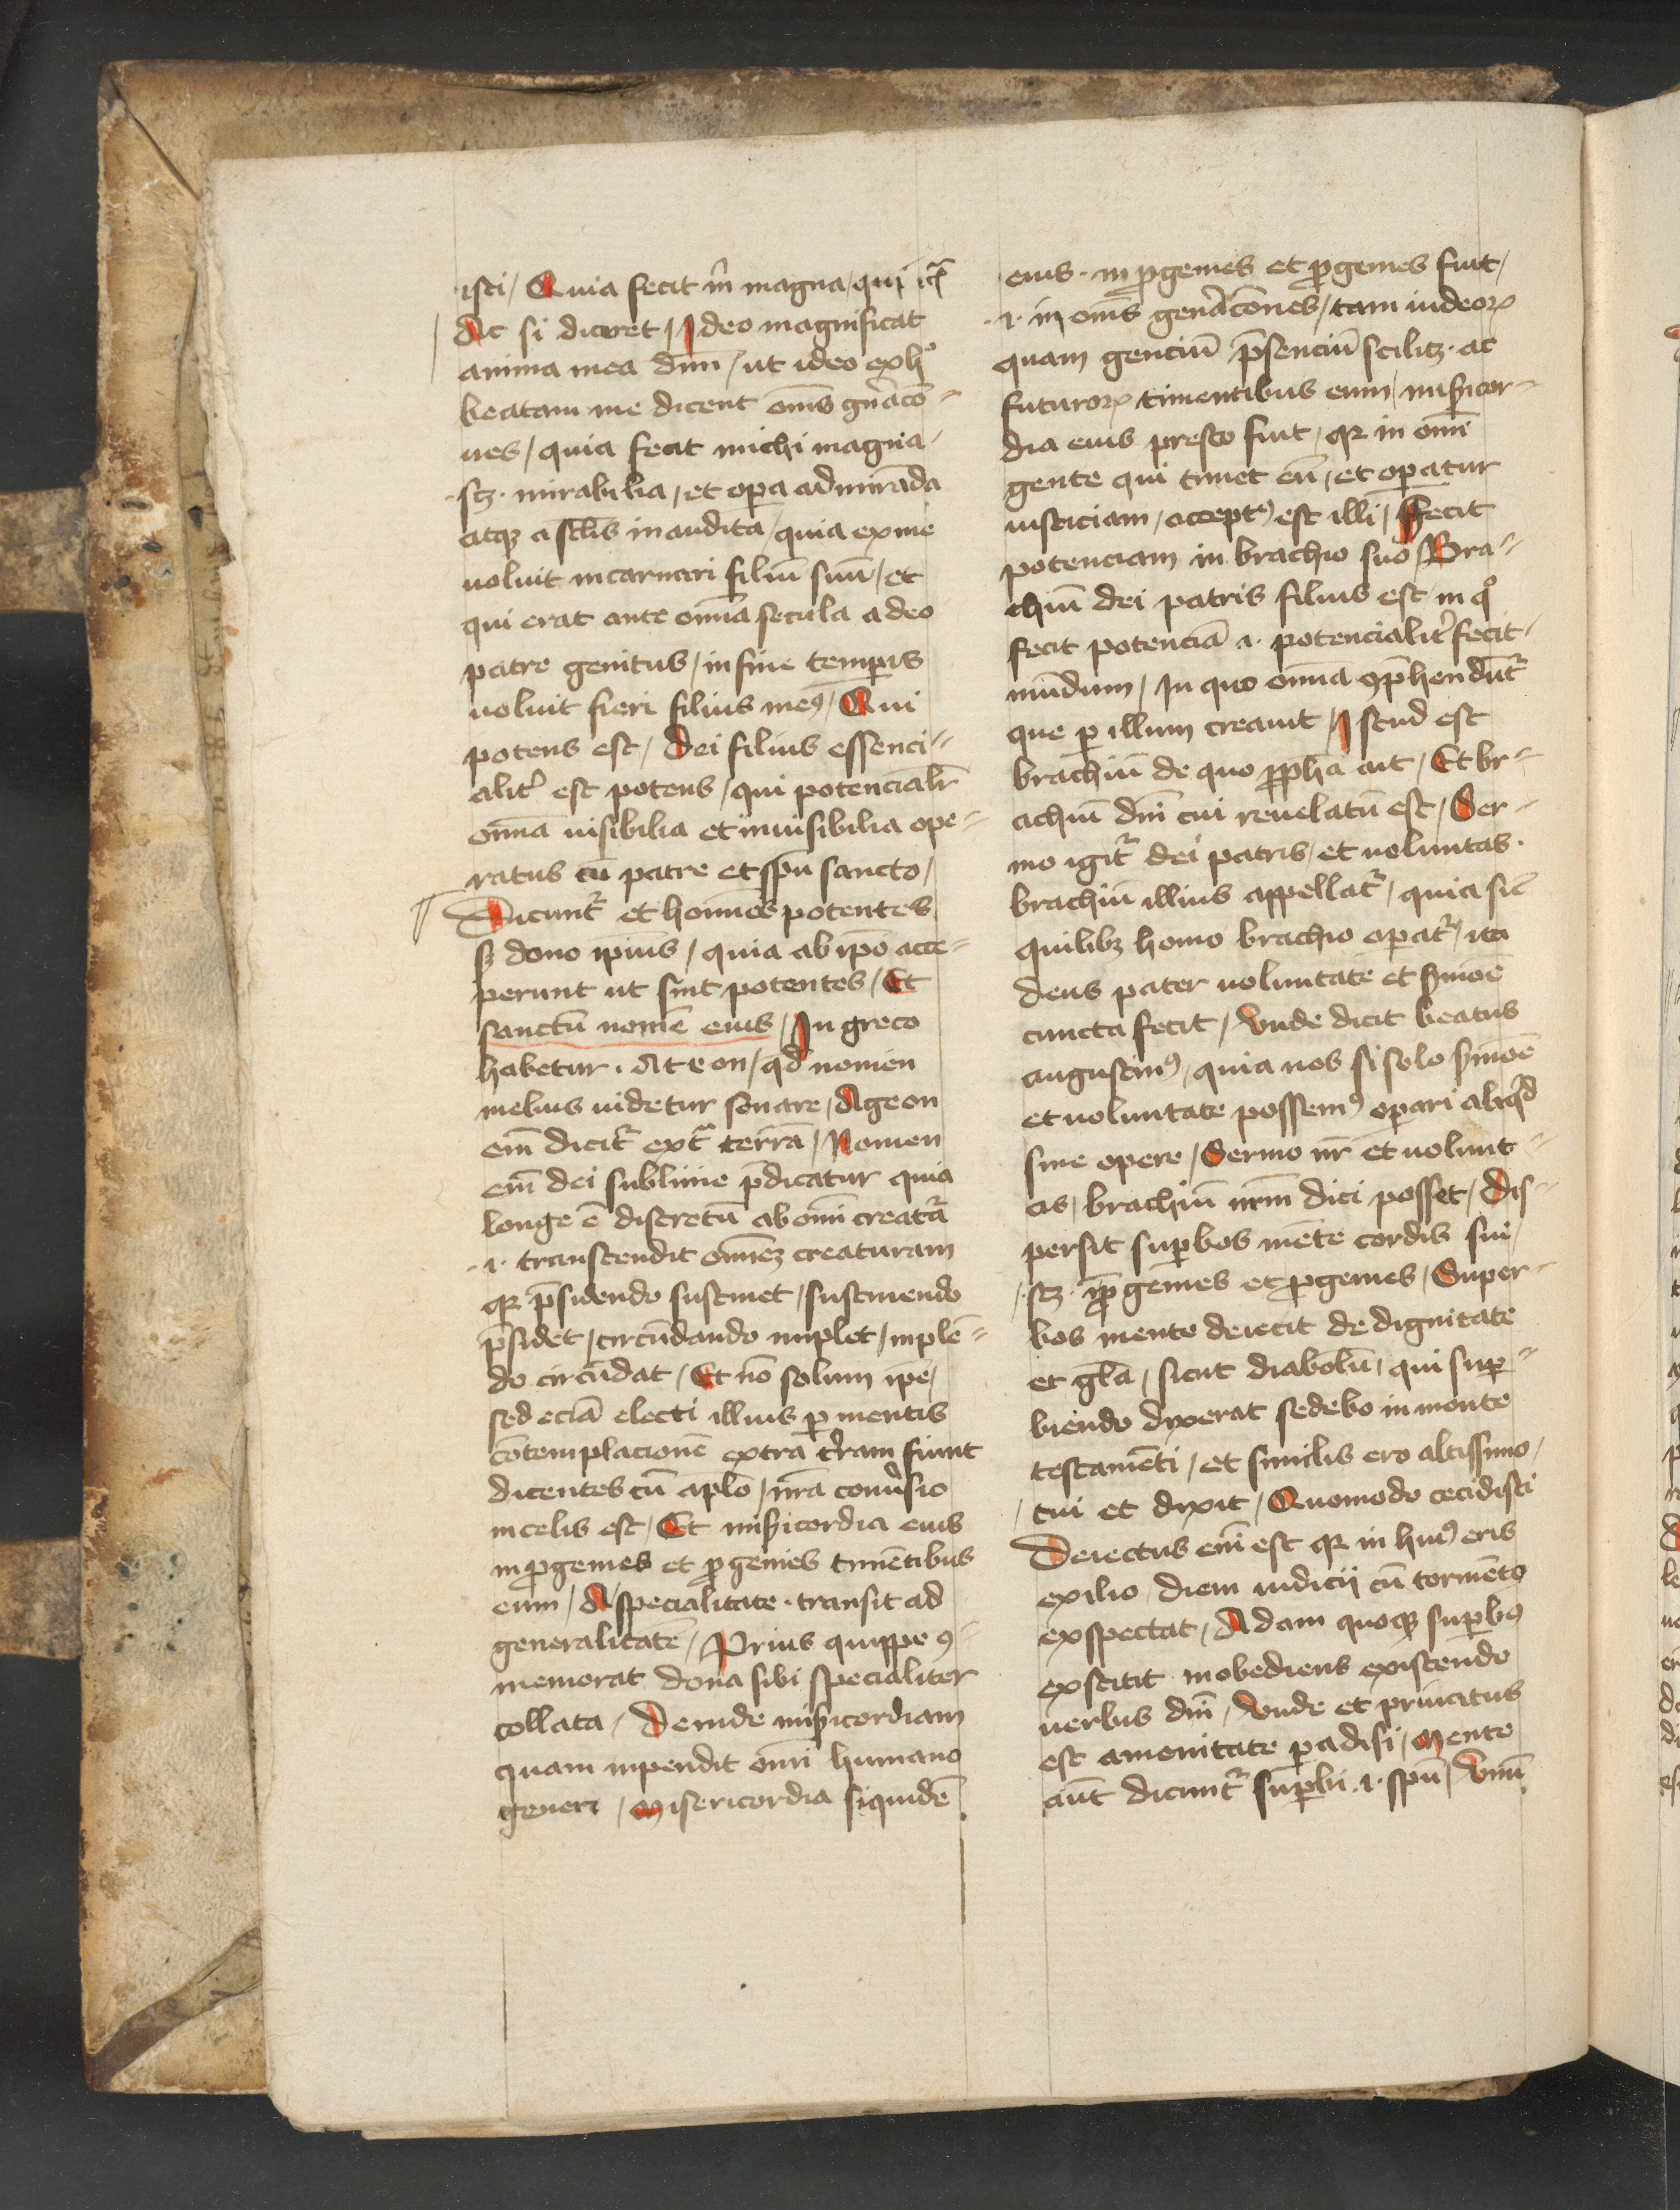 isti / Quia fecit m̄ magna / qui
Ac si diceret / Ideo magnificat
anima mea dn̄m / ut ideo ex hº
beatam me dicent om̄s gn̄acō=
nes / quia fecit michi magna /
.scꝫ. mirabilia / et opa admirāda
atqꝫ a sc̄lis inaudita / quia ex me
uoluit incarnari filiū suū / et
qui erat ante om̄ia secula a deo
patre genitus / in fine temporis
uoluit fieri filius meꝰ / Qui
potens est / Dei filius essenci=
alit̾ est potens / qui potencialr̄
om̄ia uisibilia et inuisibilia ope=
ratus cū patre et spū sancto /
Dicunt̾ et homines potentes
sꝫ dono ip̄ius / quia ab ip̄o acce=
perunt ut sint potentes / Et
sanctū nomē eius / In greco
habetur . Ateon / qd̄ nomen
melius uidetur sonare / Ageon
em̄ dicit̾ ext̾ terrā / Nomen
em̄ dei sublime p̄dicatur quia
longe ē discretū ab om̄i creat̾a
.i. transcendit om̄eꝫ creaturam
qꝛ p̄sidendo sustinet / sustinendo
p̄sidet / circūdando implet / inplē=
do circūdat / Et nō solum ip̄e /
sed eciā electi illius ꝑ mentis
cōtemplacionē extra t̾ram fiunt
dicentes cū aplō / nr̄a conu̾sio
in celis est / Et mis̄icordia eius
in ꝓgenies et ꝓgenies timētibus
eum / A specialitate . transit ad
generalitatē / Prius quippe ꝯ=
memorat dona sibi specialiter
collata / Deinde mis̄icordiam
quam inpendit om̄i humano
generi / Misericordia siquidē
eius . in ꝓgenies et ꝓgenies fuit /
.i. in om̄s gen̾acōnes / tam iudeoꝝ
quam genciū p̄senciū scilitꝫ . ac
futuroꝝ timentibus eum / mis̄icor=
dia eius presto fuit / qꝛ in om̄i
gente qui timet eū / et oꝑatur
iusticiam / acceptꝰ est illi / Fecit
potenciam in brachio suo / Bra=
chiū dei patris filius est in qº
fecit potenciā .i. potencialit̾ fecit
mūdum / In quo om̄ia ꝯp̄hendūt̾
que ꝑ illum creauit / Istud est
brachiū de quo ꝓpha ait / Et br=
achiū dn̄i cui reuelatū est / Ser=
mo igit̾ dei patris / et uoluntas .
brachiū illius appellat̾ / quia sic̄
quilibꝫ homo brachio oꝑat̾ / ita
deus pater uoluntate et s̾mōē
cuncta fecit / Vnde dicit beatus
augustinꝰ / quia nos si solo s̾mōē
et uoluntate possemꝰ oꝑari aliqd̾
sine opere / Sermo nr̄ et uolunt=
as / brachiū nr̄m dici posset / Dis=
persit suꝑbos mēte cordis sui /
.scꝫ. ī ꝓgenies et ꝓgenies / Super=
bos mente deiecit de dignitate
et gl̄a / sicut diabolū / qui suꝑ=
biendo dixerat sedebo in monte
testamēti / et similis ero altissimo /
cui et dixit / Quomodo cecidisti
Deiectus em̄ est qꝛ in huiꝰ eris
exilio diem iudicij cū tormēto
exspectat / Adam quoqꝫ suꝑbꝰ
exstitit inobediens existendo
uerbis dn̄i / Vnde et priuatus
est amenitate ꝑadisi / Mente
aūt dicunt̾ suꝑbi .i. spū / Vnū